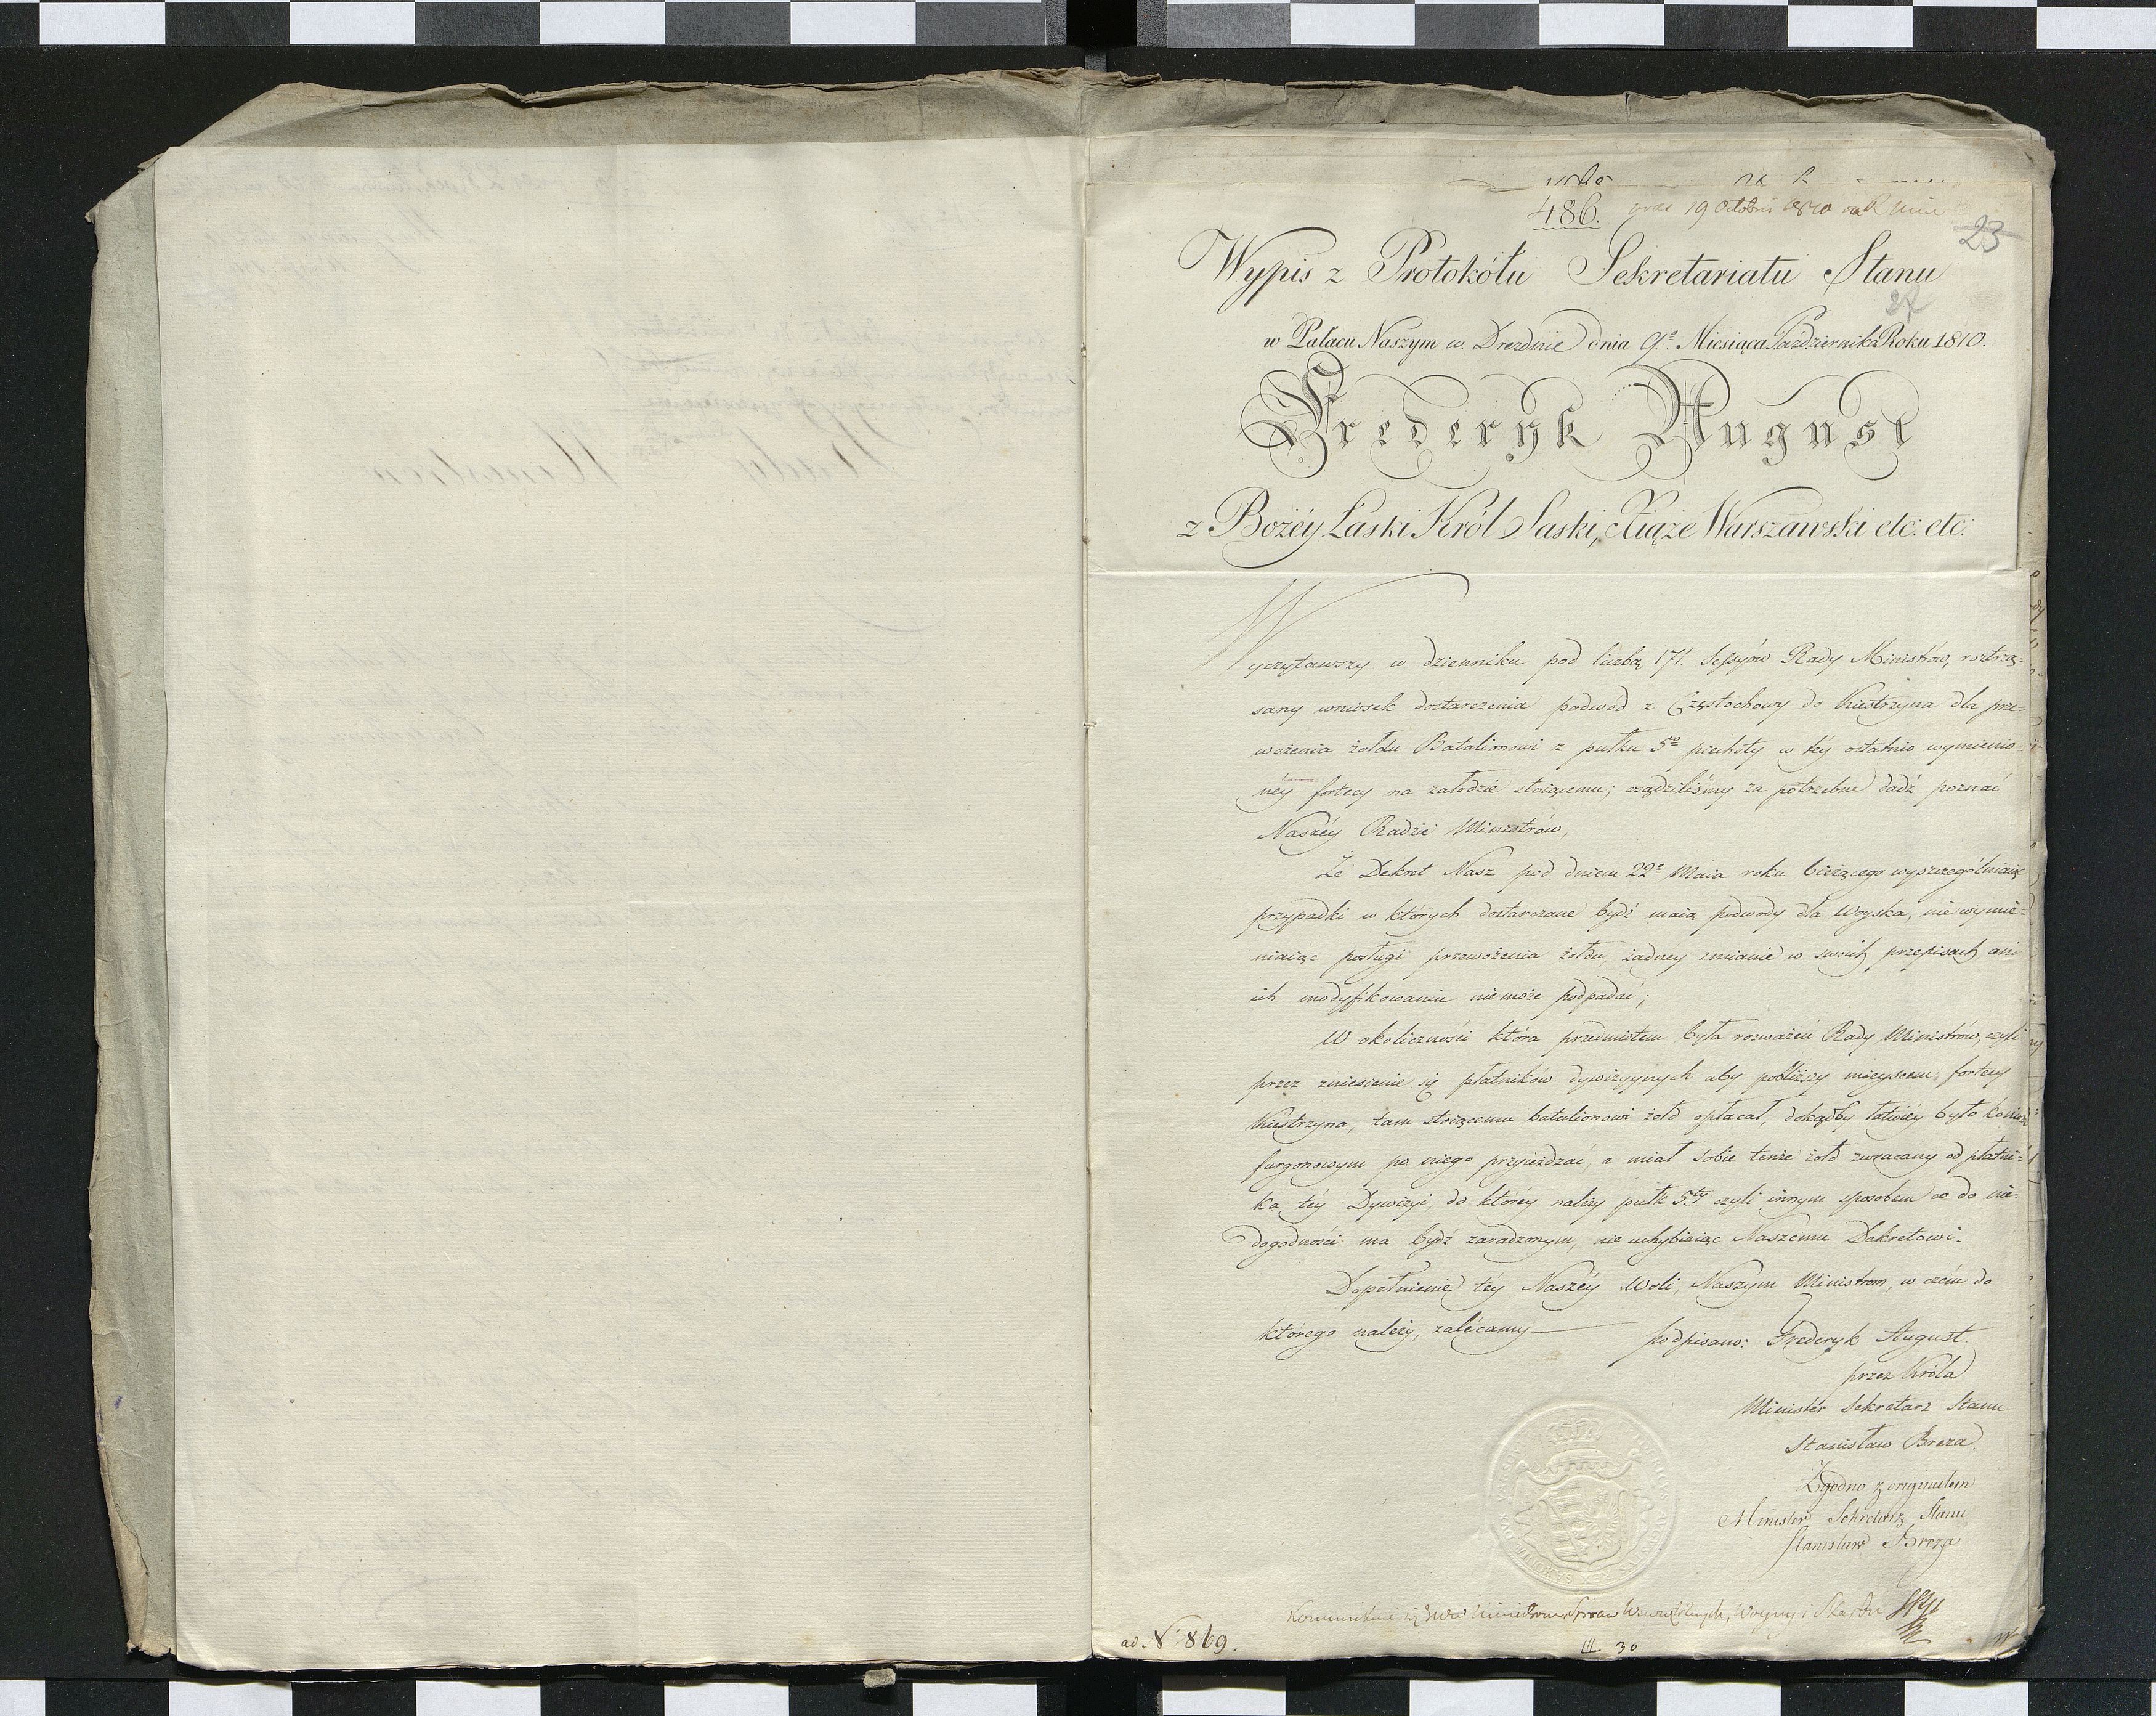 486. 19 Octobris 1810
23
Wypis z Protokółu Sekretariatu Stanu
w Pałacu Naszym w Dreznie dnia 9º Miesiąca Października Roku 1810.
Frederyk August
z Bożéy Łaski Król Saski, Xiąże Warszawski etc: etc:
Wyczytawszy w dzienniku pod liczbą 171. Sessyów Rady Ministrów, roztrzą=
sany wniosek dostarczenia podwód z Częstochowy do Kiestrzyna dla prze=
wożenia żołdu Batalionowi z pułku 5º piechoty w téy ostatnio wymienio
néy fortecy na załodze stoiącemu; osądziliśmy za potrzebne dadź poznać
Naszéy Radzie Ministrów,
Że Dekret Nasz pod dniem 22º Maia roku bieżącego wyszczególniaiąc
przypadki w których dostarczane bydź maią podwody dla Woyska, nie wymie=
niaiąc posługi przewożenia żołdu, żadney zmianie w swoich przepisach ani
ich modyfikowaniu nie może podpadać;
W okoliczności która przedmiotem była rozważań Rady Ministrów, czyli
przez zniesienie się płatników dywizyynych aby pobliższy mieyscem fortecy
Kiestrzyna, tam stoiącemu batalionowi żołd opłacał, dokądby łatwiéy było koniom
furgonowym po niego przyieżdzać, a miał sobie tenże żołd zwracany od płatni=
ka téy Dywizyi, do któréy należy pułk 5.ty czyli innym sposobem co do nie=
dogodności ma bydź zaradzonym, nie uchybiaiąc Naszemu Dekretowi.
Dopełnienie téy Naszéy Woli, Naszym Ministrom, w czém do
którego należy, zalécamy— podpisano: Frederyk August
przez Króla
Minister Sekretarz Stanu
Stanisław Breza
Zgodno z originałem
Minister Sekretarz Stanu
Stanisław Breza
Kommunikuie się Ministrom Spraw Wewnętrznych, Woyny i Skarbu
ad Nº 869.
III 30